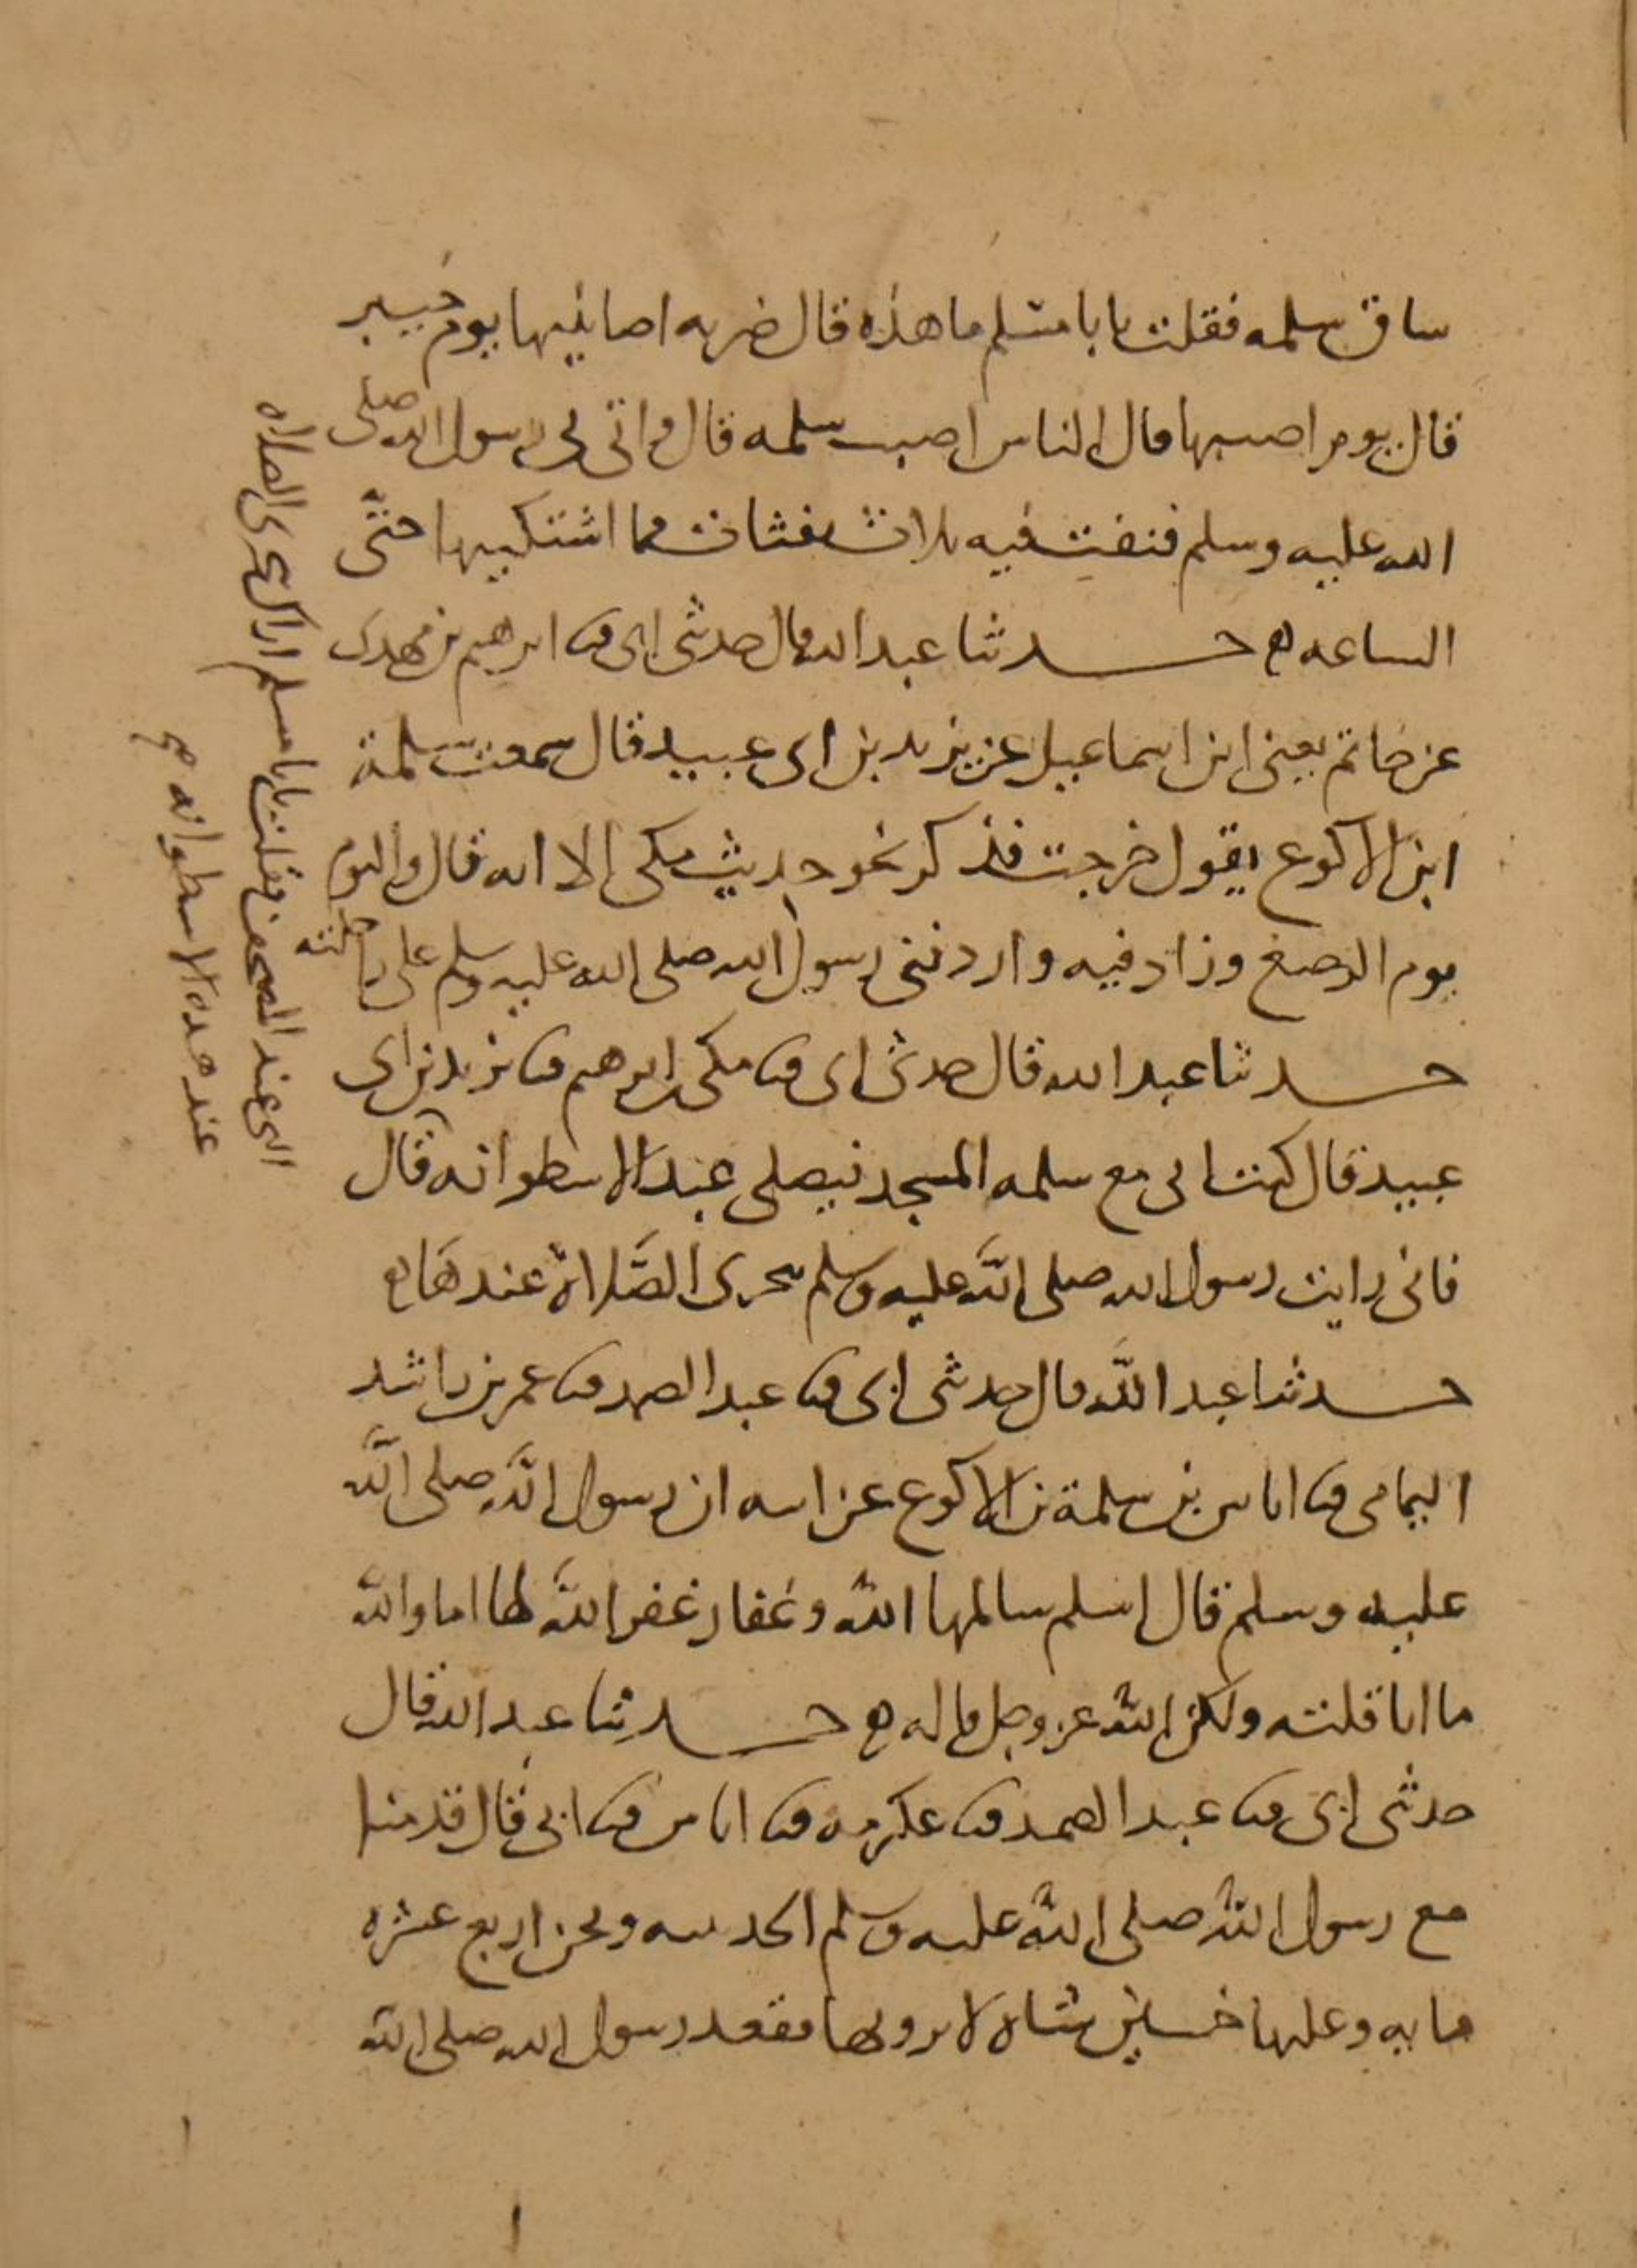 ساق سلمه فقلت يا با مسلم ما هذه قال ضربه اصابتيها يوم خيبر
قال يوم اصبتها قال الناس اصيب سلمه قال فاتى بى رسول الله صلى
الله عليه وسلم فنفث فيه ثلاث نفثات فما اشتكيتها حتى
الساعه ه حدثنا عبد الله قال حدثنى ابى ثنا ابرهيم بن مهدى
عن حاتم يعنى ابن اسماعيل عن يزيد بن ابى عبيد قال سمعت سلمة
ابن الاكوع يقول خرجت فذكر نحو حديث مكى الا انه قال واليوم
يوم الرضع وزاد فيه واردفنى رسول الله صلى الله عليه وسلم على ناقته
حدثنا عبد الله قال حدثنى ابى ثنا مكى بن ابرهيم ثنا يزيد بن ابى
عبيد قال كنت اتى مع سلمه المسجد فيصلى عند الاسطوانه قال
فانى رايت رسول الله صلى الله عليه وسلم يتحرى الصلاة عندها ه
حدثنا عبد الله قال حدثنى ابى ثنا عبد الصمد ثنا عمر بن راشد
اليمامى ثنا اياس بن سلمة بن الاكوع عن ابيه ان رسول الله صلى الله
عليه وسلم قال اسلم سالمها الله وغفار غفر الله لها اما والله
ما انا قلته ولكن الله عز وجل قاله ه حدثنا عبد الله قال
حدثنى ابى ثنا عبد الصمد ثنا عكرمه ثنا اياس ثنا ابى قال قدمنا
مع رسول الله صلى الله عليه وسلم الحديبيه ونحن اربع عشره
مايه وعليها خمسين شاه لا ترويها فقعد رسول الله صلى الله
التى عند المصحف فقلت يا با مسلم اراك تتحرى الصلاه
عند هذه الاسطوانه صح